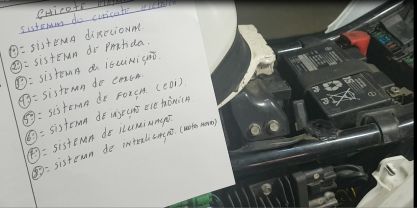 CHICOTE
SISTEMAS DO CHICOTE
1º = SISTEMA DIRECIONAL
2º = SISTEMA DE PARTIDA.
3º = SISTEMA DI IGUINIÇÃO.
4º = SISTEMA DE CARGA.
5º = SISTEMA DE FORÇA. (CDI)
6º = SISTEMA DE INJEÇÃO ELETRÔNICA
7º = SISTEMA DE ILUMINAÇÃO.
8º = SISTEMA DE INTERLIGAÇÃO. (MOTO NOVAS)